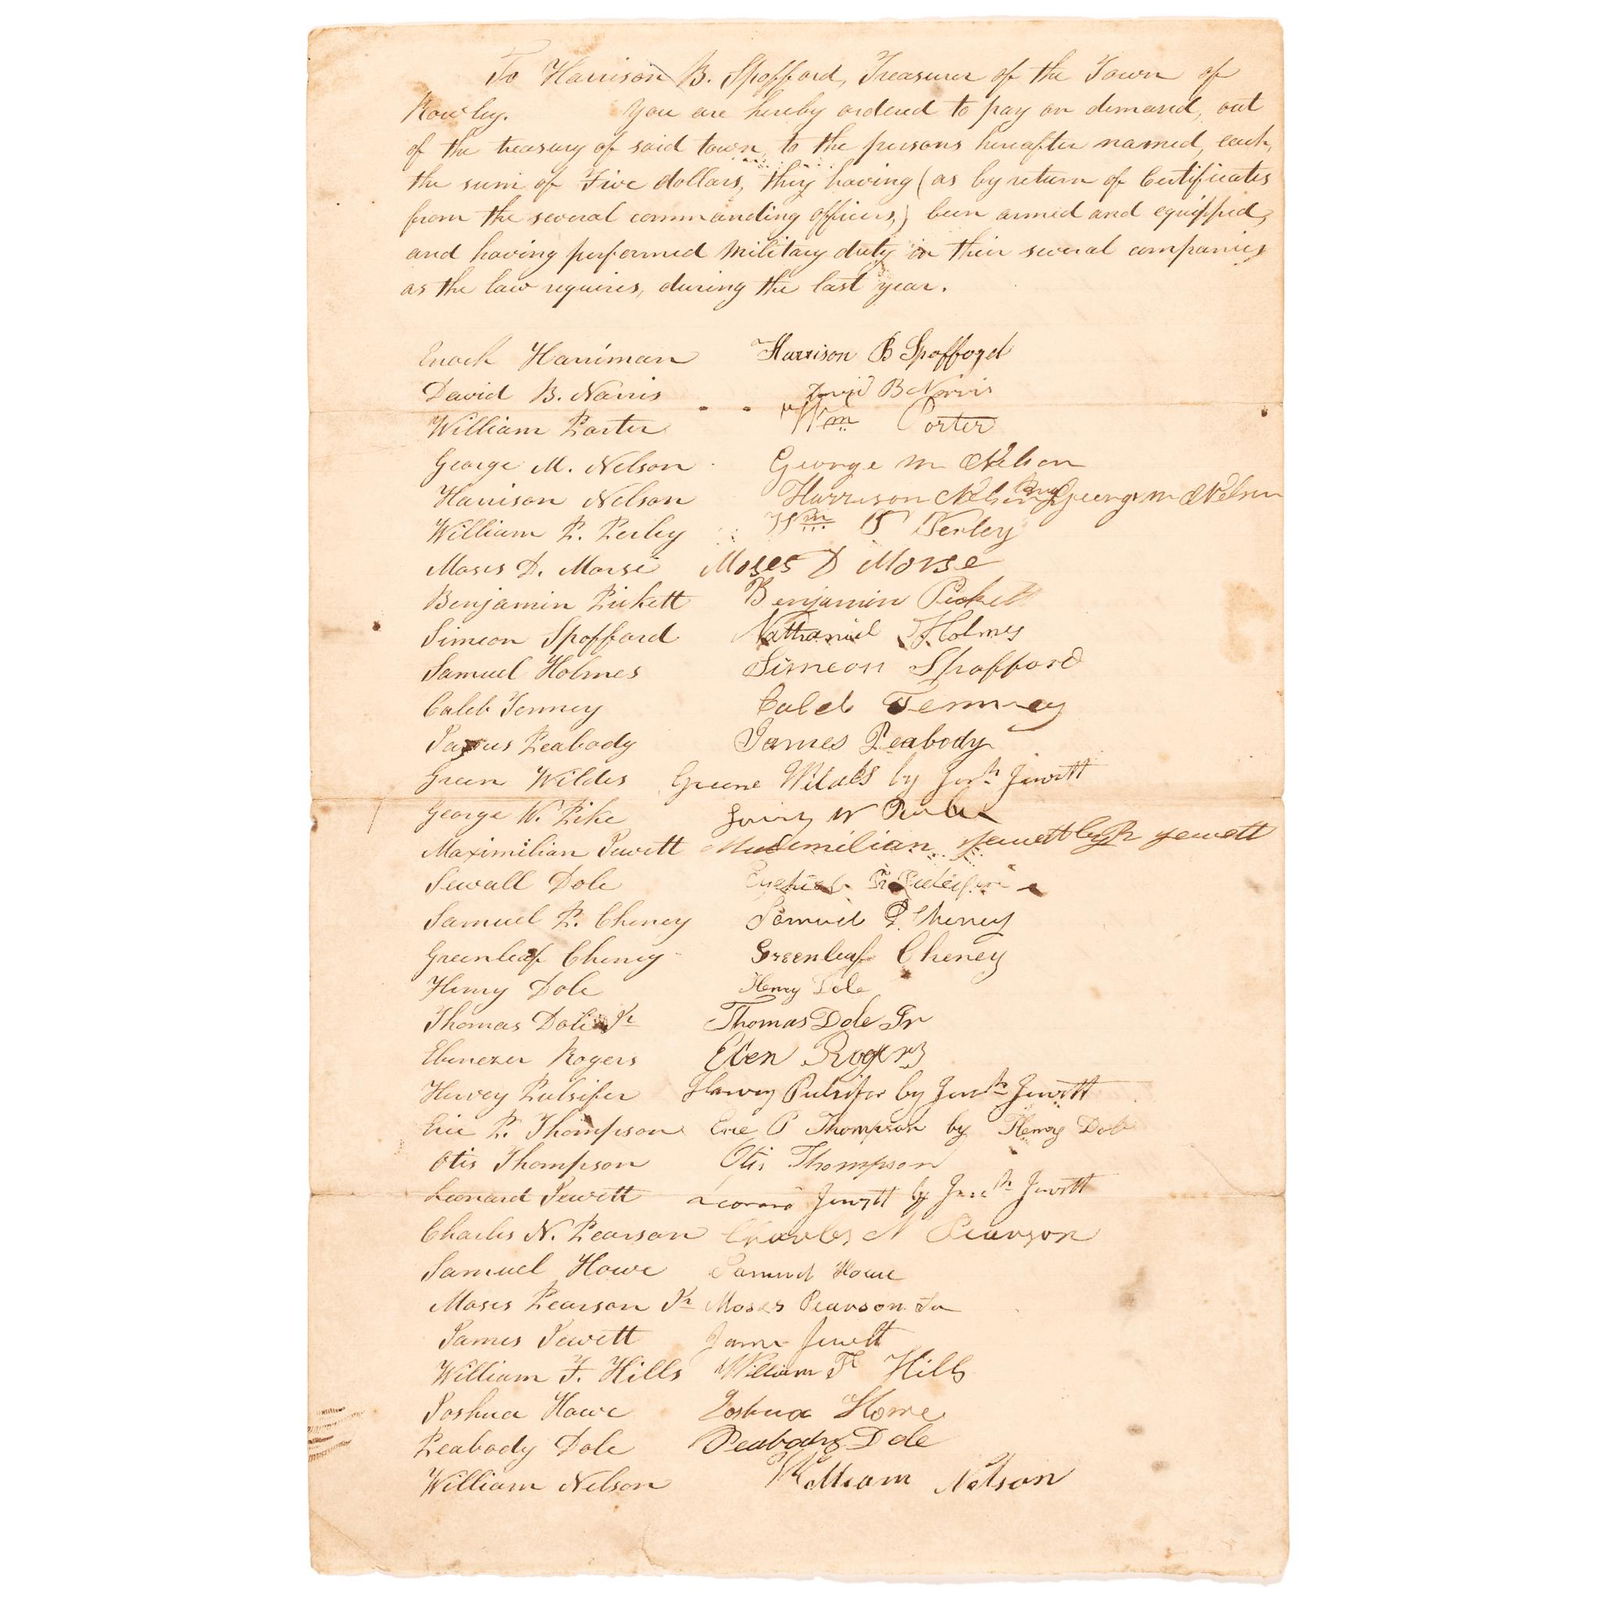 To Harrison B. Spofford, Treasurer of the Town of
Rowley. You are hereby ordered to pay on demand, out
of the treasury of said town, to the persons hereafter named, each,
the sum of Five dollars, they having (as by return of Certificates
from the several commanding officers,) been armed and equipped,
and having performed military duty in their several companies
as the law requires, during the last year.
Enoch Harriman Harrison B Spofford
David B. Norris David B Norris
William Porter Wm Porter
George M. Nelson George M Nelson
Harrison Nelson Harrison Nelson George M Nelson
William P. Perley Wm P Perley
Moses D. Morse Moses D Morse
Benjamin Pickett Benjamin Pickett
Simeon Spofford Nathaniel Holmes
Samuel Holmes Simeon Spofford
Caleb Tenney Caleb Tenney
James Peabody James Peabody
Green Wildes Greene Wildes by Jos.h Jewett
George W. Pike
Maximilian Jewett Maximilian Jewett by Jewett
Sewall Dole
Samuel P. Cheney Samuel P. Cheney
Greenleaf Cheney Greenleaf Cheney
Henry Dole Henry Dole
Thomas Dole Jr Thomas Dole Jr
Ebenezer Rogers Eben Rogers
Harvey Pulsifer Harvey Pulsifer by Josh Jewett
Eric P. Thompson Eric P Thompson by Henry Dole
Otis Thompson Otis Thompson
Leonard Jewett Leonard Jewett by Josh Jewett
Charles N. Pearson Charles N Pearson
Samuel Howe Samuel Howe
Moses Pearson Jr Moses Pearson Jr
James Jewett James Jewett
William F. Hills William F Hills
Joshua Howe Joshua Howe
Peabody Dole Peabody Dole
William Nelson William Nelson